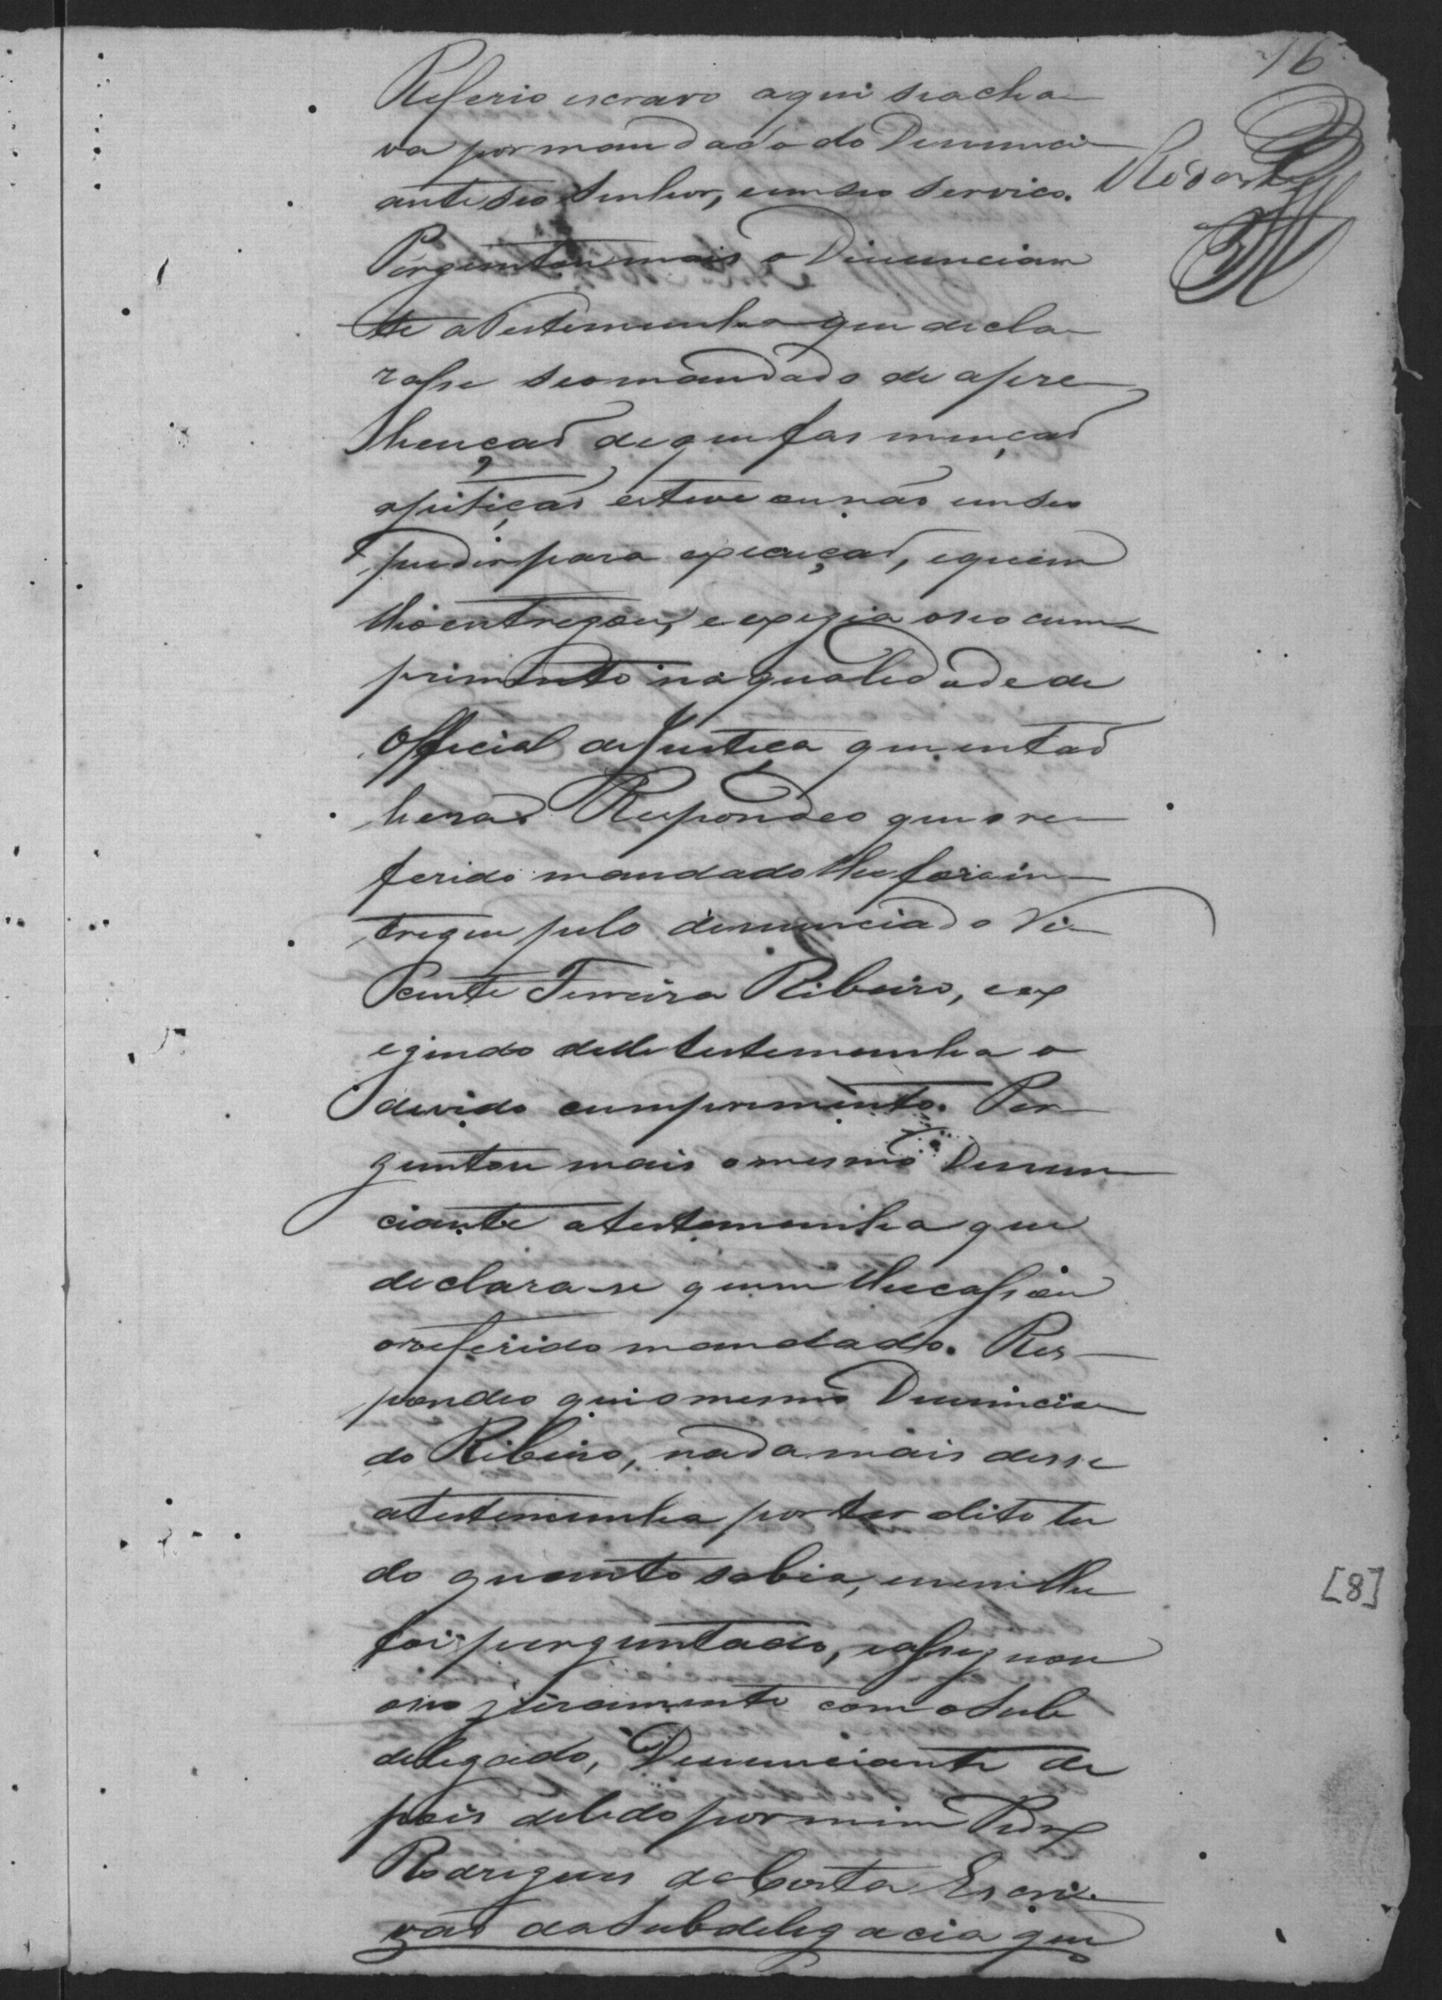 16
Referio escravo aqui seacha
va por mandado do Denunci
ante seo Senhor, eem seo serviço.
Perguntou mais o Denuncian
te a Testemunha que decla
rasse seo mandado de apre
hençaõ de que fas mençaõ
apitiçaõ esteve ou não em seo
puder para execuçaõ, equem
lhe entregou, e exegia oseo cum
primento na qualidade de
Official de Justiça que entaõ
hera. Respondeo que o re
ferido mandado lhe fora in
tregue pelo denunciado Vi
cente Ferreira Ribeiro, e ex
egindo delle testemunha o
devido cumprimento. Per
guntou mais o mesmo Denun
ciante a testemunha que
declara-se quem lhe cassou
o referido mandado. Res
pondeo que o mesmo Denuncia
do Ribeiro, nada mais disse
a testemunha por ter dito tu
do quanto sabia, e nem lhe
foi perguntado, e assignou
o seo juramento com o Sub
delegado, Denunciante de
pois delido por mim
Rodrigues da Costa Escri
vaõ da Subdelegacia que
[8]